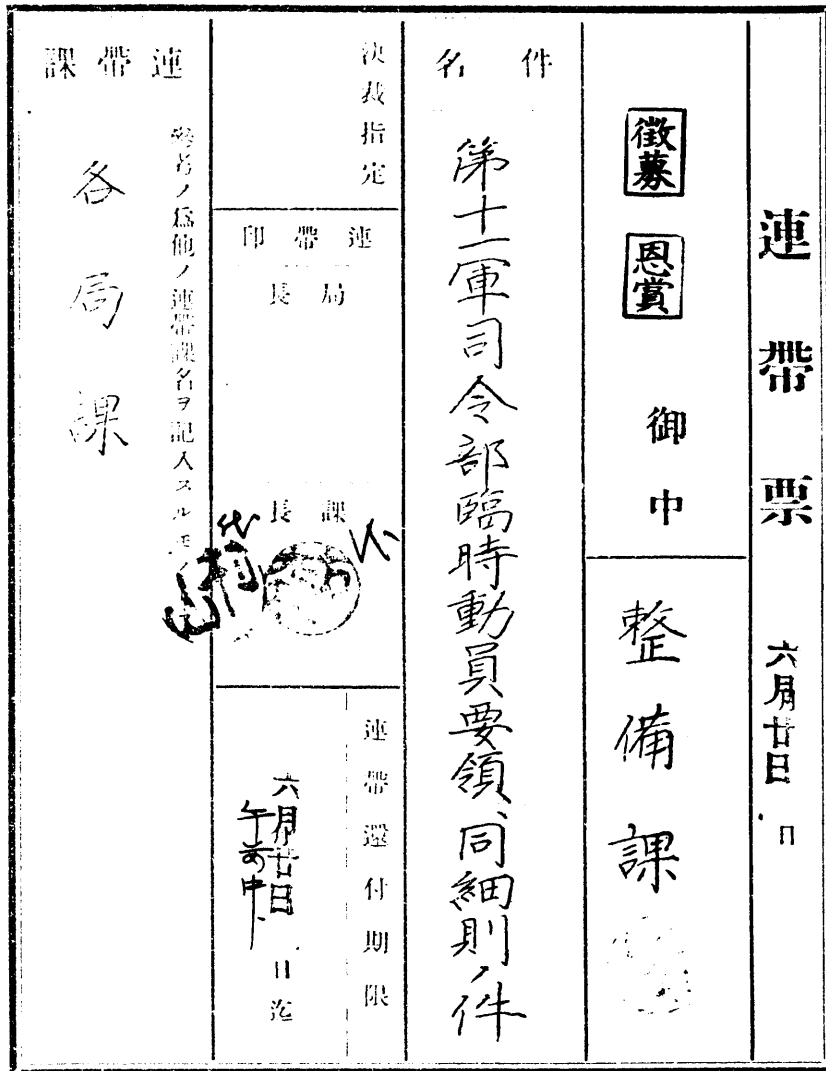 連帶票
六月廿日 日
徵募 恩賞 御中
整備課
件名
第十一軍司令部臨時動員要領、同細則ノ件
決裁指定
連帶印
局長
課長
代
連帶還付期限
六月廿日 日迄
午前中
連帶課
參考ノ爲他ノ連帶課名ヲ記入スルモノ
各局課